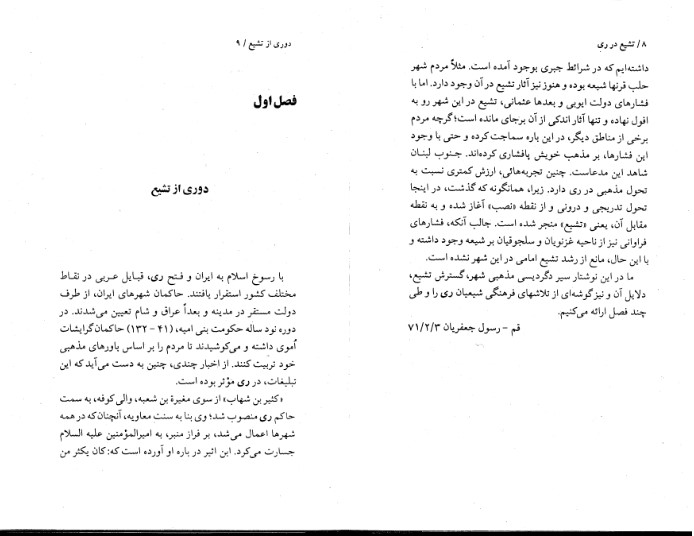 ۸ / تشیع در ری
داشته‌ایم که در شرائط جبری بوجود آمده است. مثلاً مردم شهر
حلب قرنها شیعه بوده و هنوز نیز آثار تشیع در آن وجود دارد. اما با
فشارهای دولت ایوبی و بعدها عثمانی، تشیع در این شهر رو به
افول نهاده و تنها آثار اندکی از آن برجای مانده است؛ گرچه مردم
برخی از مناطق دیگر، در این باره سماجت کرده و حتی با وجود
این فشارها، بر مذهب خویش پافشاری کرده‌اند. جنوب لبنان
شاهد این مدعاست. چنین تجربه‌هائی، ارزش کمتری نسبت به
تحول مذهبی در ری دارد. زیرا، همانگونه که گذشت، در اینجا
تحول تدریجی و درونی و از نقطه «نصب» آغاز شده و به نقطه
مقابل آن، یعنی «تشیع» منجر شده است. جالب آنکه، فشارهای
فراوانی نیز از ناحیه غزنویان و سلجوقیان بر شیعه وجود داشته و
با این حال، مانع از رشد تشیع امامی در این شهر نشده است.
ما در این نوشتار سیر دگردیسی مذهبی شهر، گسترش تشیع،
دلایل آن و نیز گوشه‌ای از تلاشهای فرهنگی شیعیان ری را و طی
چند فصل ارائه می‌کنیم.
قم - رسول جعفریان ۷۱/۲/۳
دوری از تشیع / ۹
فصل اول
دوری از تشیع
با رسوخ اسلام به ایران و فتح ری، قبایل عربی در نقاط
مختلف کشور استقرار یافتند. حاکمان شهرهای ایران، از طرف
دولت مستقر در مدینه و بعداً عراق و شام تعیین می‌شدند. در
دوره نود ساله حکومت بنی امیه، (۴۱ - ۱۳۲) حاکمان گرایشات
اموی داشته و می‌کوشیدند تا مردم را بر اساس باورهای مذهبی
خود تربیت کنند. از اخبار چندی، چنین به دست می‌آید که این
تبلیغات، در ری مؤثر بوده است.
«کثیر بن شهاب» از سوی مغیرة بن شعبه، والی کوفه، به سمت
حاکم ری منصوب شد؛ وی بنا به سنت معاویه، آنچنان که در همه
شهرها اعمال می‌شد، بر فراز منبر، به امیرالمؤمنین علیه السلام
جسارت می‌کرد. ابن اثیر در باره او آورده است که: کان یکثر من